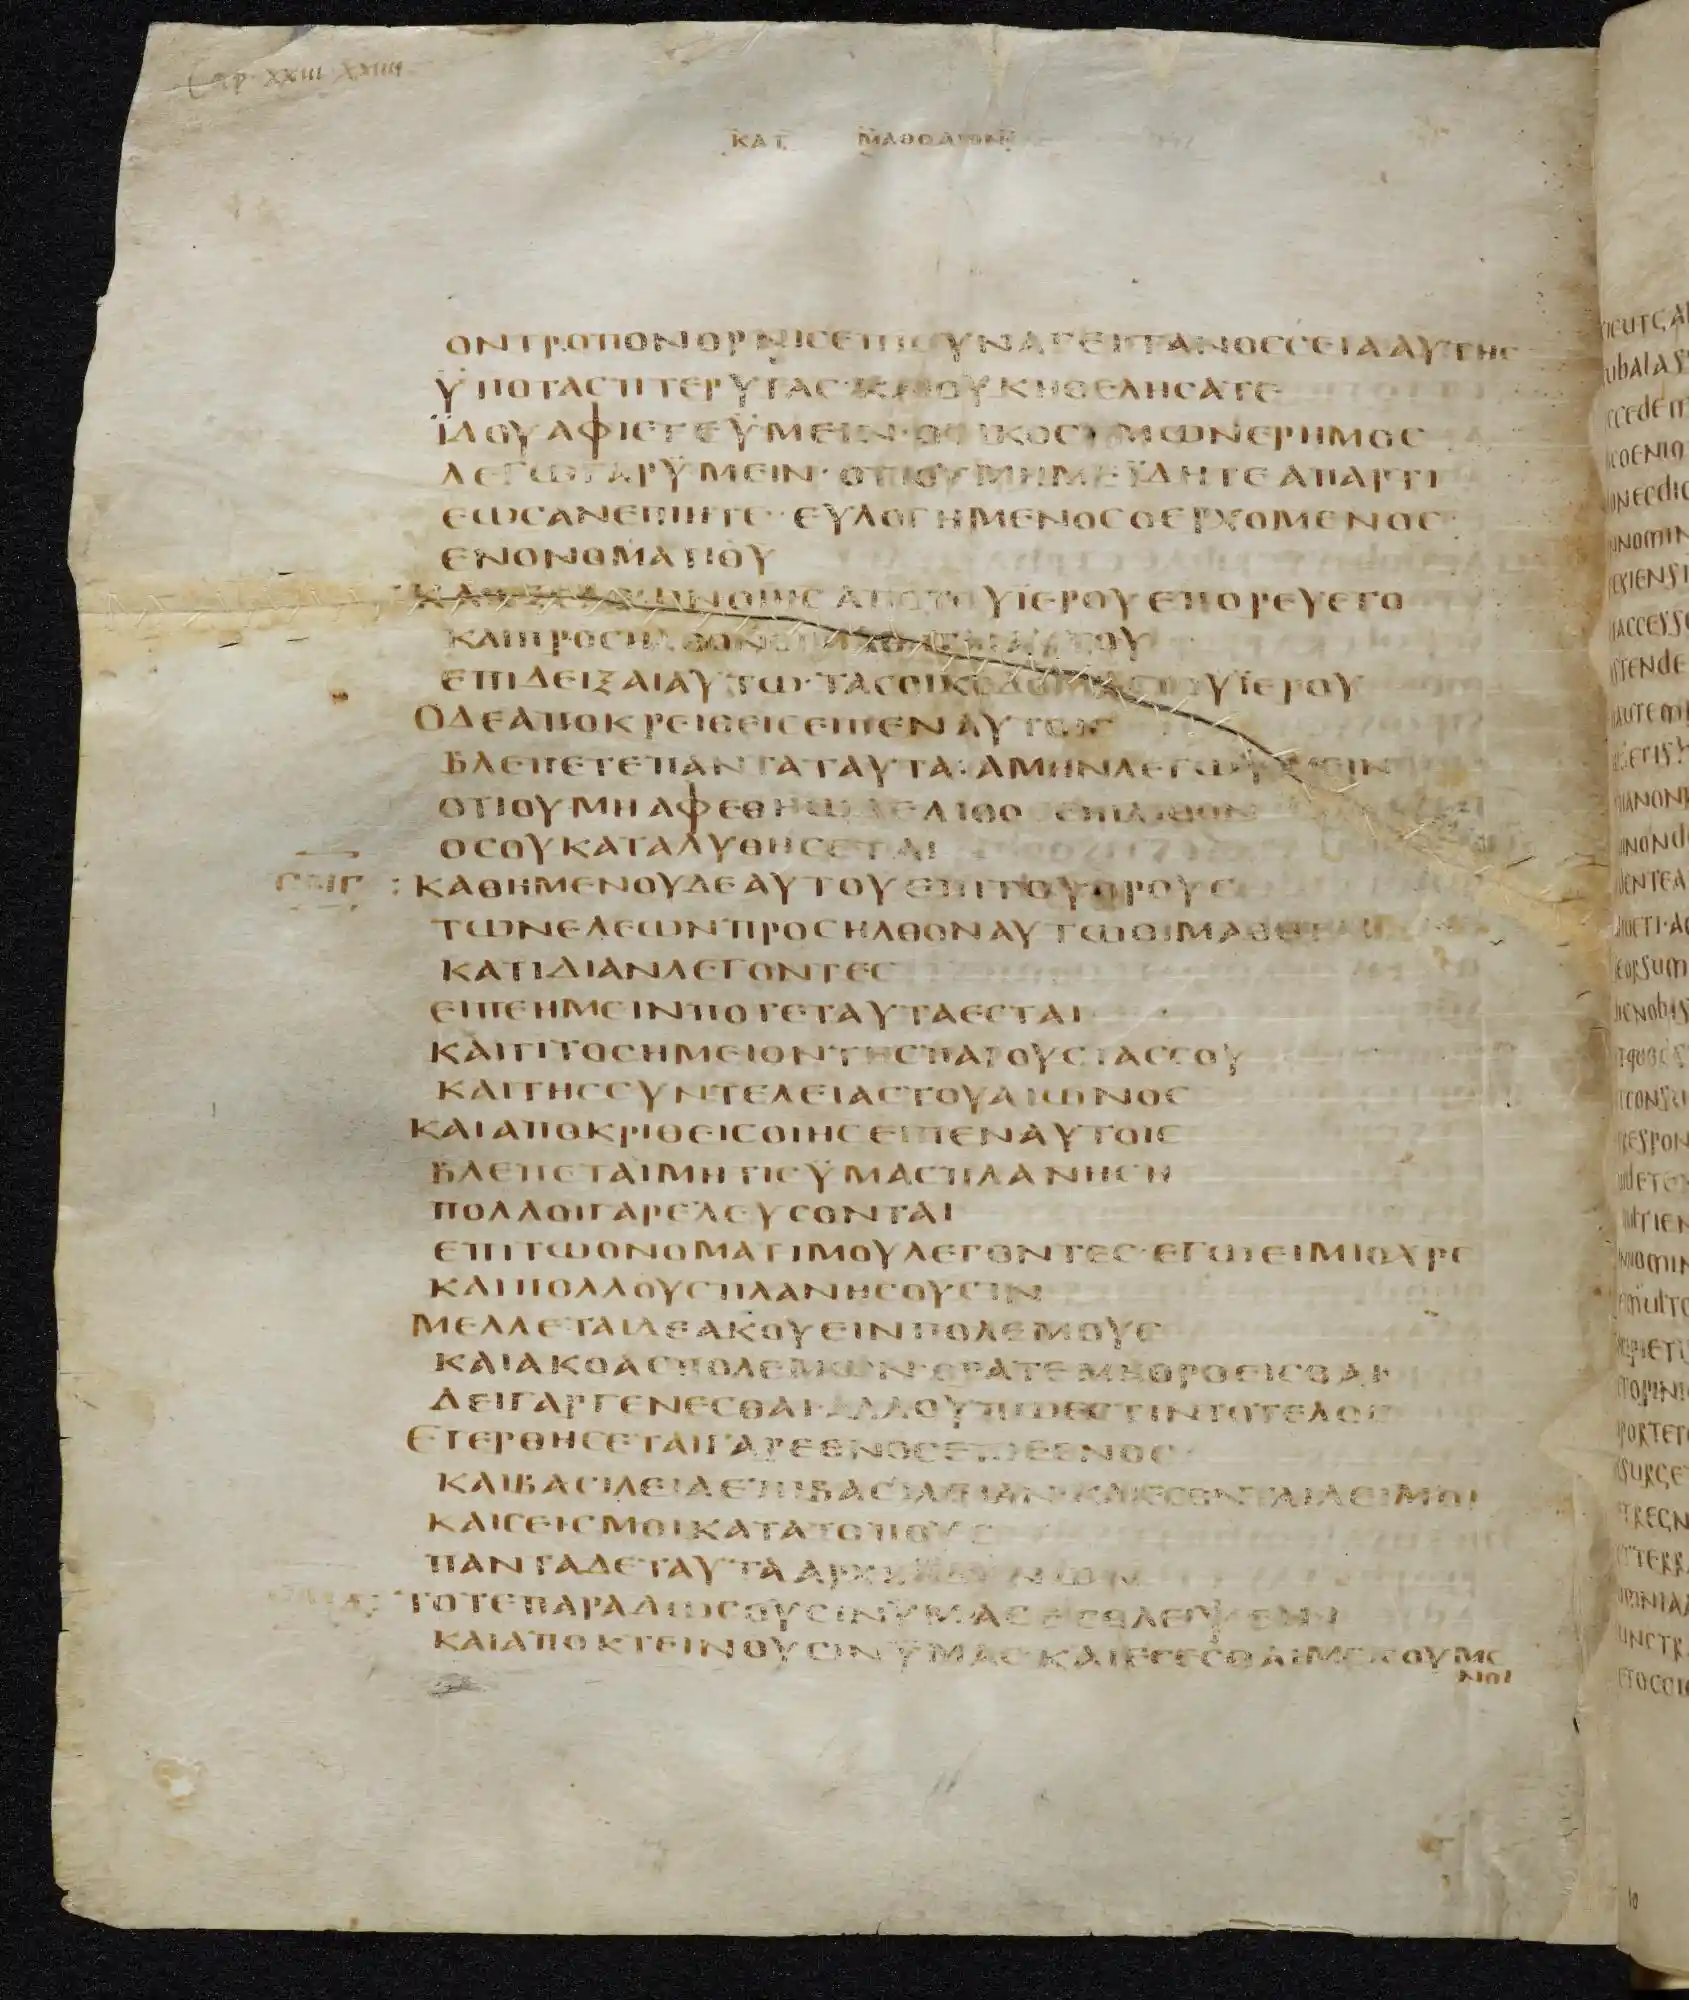 Cap XXIII XXIIII
ΚΑΤ ΜΑΘΘΑΙΟΝ
ΟΝΤΡΟΠΟΝΟΡΝΙϹΕΠΙϹΥΝΑΓΕΙΤΑΝΟϹϹΕΙΑΑΥΤΗϹ
ΫΠΟΤΑϹΠΤΕΡΥΓΑϹ·ΚΑΙΟΥΚΗΘΕΛΗϹΑΤΕ
ΪΔΟΥΑΦΙΕΤΕΫΜΕΙΝ·ΟΟΙΚΟϹΥΜΩΝΕΡΗΜΟϹ
ΛΕΓΩΓΑΡΫΜΕΙΝ·ΟΤΙΟΥΜΗΜΕΪΔΗΤΕΑΠΑΡΤΙ
ΕΩϹΑΝΕΙΠΗΤΕ·ΕΥΛΟΓΗΜΕΝΟϹΟΕΡΧΟΜΕΝΟϹ
ΕΝΟΝΟΜΑΤΙΘΥ
ΚΑΙΕΞΕΛΘΩΝΟΙΗϹΑΠΟΤΟΥΪΕΡΟΥΕΠΟΡΕΥΕΤΟ
ΚΑΙΠΡΟϹΗΛΘΟΝΟΙΜΑΘΗΤΑΙΑΥΤΟΥ
ΕΠΙΔΕΙΞΑΙΑΥΤΩ·ΤΑϹΟΙΚΟΔΟΜΑϹΤΟΥΪΕΡΟΥ
ΟΔΕΑΠΟΚΡΕΙΘΕΙϹΕΙΠΕΝΑΥΤΟΙϹ
ΒΛΕΠΕΤΕΠΑΝΤΑΤΑΥΤΑ:ΑΜΗΝΛΕΓΩΥΜΕΙΝ
ΟΤΙΟΥΜΗΑΦΕΘΗΩΔΕΛΙΘΟϹΕΠΙΛΙΘΟΝ
ΟϹΟΥΚΑΤΑΛΥΘΗϹΕΤΑΙ
ΚΑΘΗΜΕΝΟΥΔΕΑΥΤΟΥΕΠΙΤΟΥΟΡΟΥϹ
ΤΩΝΕΛΕΩΝΠΡΟϹΗΛΘΟΝΑΥΤΩΟΙΜΑΘΗΤΑΙ
ΚΑΤΙΔΙΑΝΛΕΓΟΝΤΕϹ
ΕΙΠΕΗΜΕΙΝΠΟΤΕΤΑΥΤΑΕϹΤΑΙ
ΚΑΙΤΙΤΟϹΗΜΕΙΟΝΤΗϹΠΑΡΟΥϹΙΑϹϹΟΥ
ΚΑΙΤΗϹϹΥΝΤΕΛΕΙΑϹΤΟΥΑΙΩΝΟϹ
ΚΑΙΑΠΟΚΡΙΘΕΙϹΟΙΗϹΕΙΠΕΝΑΥΤΟΙϹ
ΒΛΕΠΕΤΑΙΜΗΤΙϹΫΜΑϹΠΛΑΝΗϹΗ
ΠΟΛΛΟΙΓΑΡΕΛΕΥϹΟΝΤΑΙ
ΕΠΙΤΩΟΝΟΜΑΤΙΜΟΥΛΕΓΟΝΤΕϹ·ΕΓΩΕΙΜΙΟΧΡϹ
ΚΑΙΠΟΛΛΟΥϹΠΛΑΝΗϹΟΥϹΙΝ
ΜΕΛΛΕΤΑΙΔΕΑΚΟΥΕΙΝΠΟΛΕΜΟΥϹ
ΚΑΙΑΚΟΑϹΠΟΛΕΜΩΝ·ΟΡΑΤΕΜΗΘΡΟΕΙϹΘΑΙ
ΔΕΙΓΑΡΓΕΝΕϹΘΑΙ·ΑΛΛΟΥΠΩΕϹΤΙΝΤΟΤΕΛΟϹ
ΕΓΕΡΘΗϹΕΤΑΙΓΑΡΕΘΝΟϹΕΠΙΕΘΝΟϹ
ΚΑΙΒΑϹΙΛΕΙΑΕΠΙΒΑϹΙΛΕΙΑΝ·ΚΑΙΕϹΟΝΤΑΙΛΕΙΜΟΙ
ΚΑΙϹΕΙϹΜΟΙΚΑΤΑΤΟΠΟΥϹ
ΠΑΝΤΑΔΕΤΑΥΤΑΑΡΧΗΩΔΙΝΩΝ
ΤΟΤΕΠΑΡΑΔΩϹΟΥϹΙΝΫΜΑϹΕΙϹΘΛΕΙΨΕΙΝ
ΚΑΙΑΠΟΚΤΕΙΝΟΥϹΙΝΫΜΑϹ·ΚΑΙΕϹΕϹΘΑΙΜΕΙϹΟΥΜΕ
ΝΟΙ